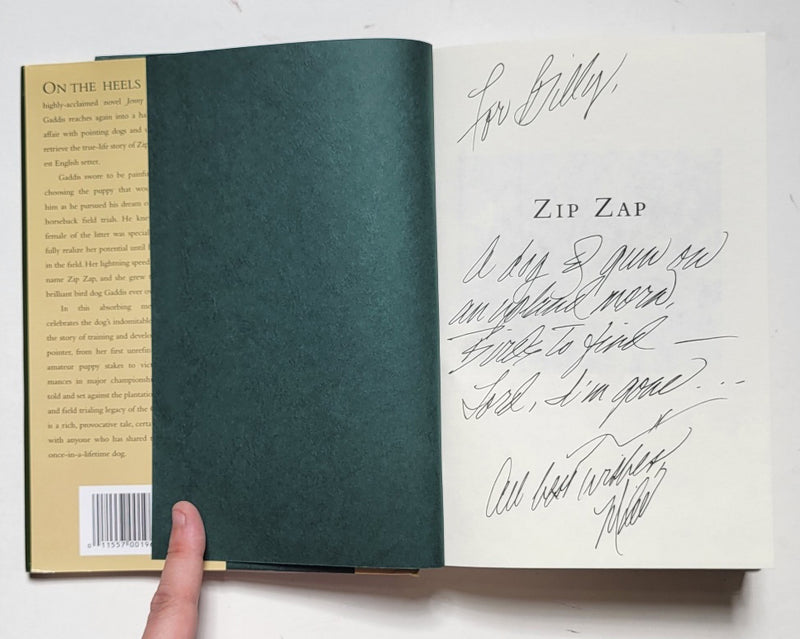 ON THE HEELS
highly-acclaimed novel Jenny
Gaddis reaches again into a ha
affair with pointing dogs and
retrieve the true-life story of Zip
est English setter.
Gaddis swore to be painfu
choosing the puppy that wou
him as he pursued his dream o
horseback field trials. He kne
female of the litter was special
fully realize her potential until
in the field. Her lightning speed
name Zip Zap, and she grew
brilliant bird dog Gaddis ever ow
In this absorbing me
celebrates the dog's indomitabl
the story of training and develo
pointer, from her first unrefin
amateur puppy stakes to vic
mances in major championsh
sold and set against the plantatio
and field trialing legacy of the
is a rich, provocative tale, certa
with anyone who has shared
once-in-a-lifetime dog.
0 11557 0019
For Billy,
ZIP ZAP
A dog & gun on
an upland morn,
Birds to find —
Lord, I'm gone...
All best wishes,
Mike